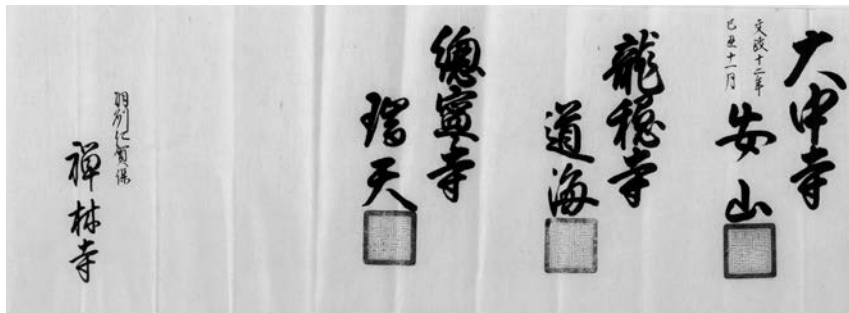 大中寺
文政十二年
己丑十一月
安山
龍穏寺
道海
總寧寺
瑞天
羽州仁賀保
禅林寺